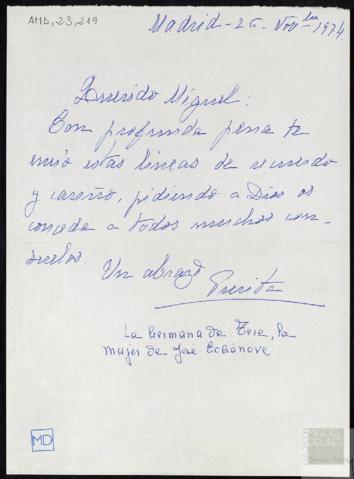 AMD, 23, 219
Madrid - 26 - Novbre 1974.
Querido Miguel:
Con profunda pena te
envio estas lineas de recuerdo
y cariño, pidiendo a Dios os
conceda a todos muchos con-
suelos
Un abrazo
La hermana de Tere, la
mujer de José Echánove
MD
FUNDACIÓN
MIGUEL
DELIBES